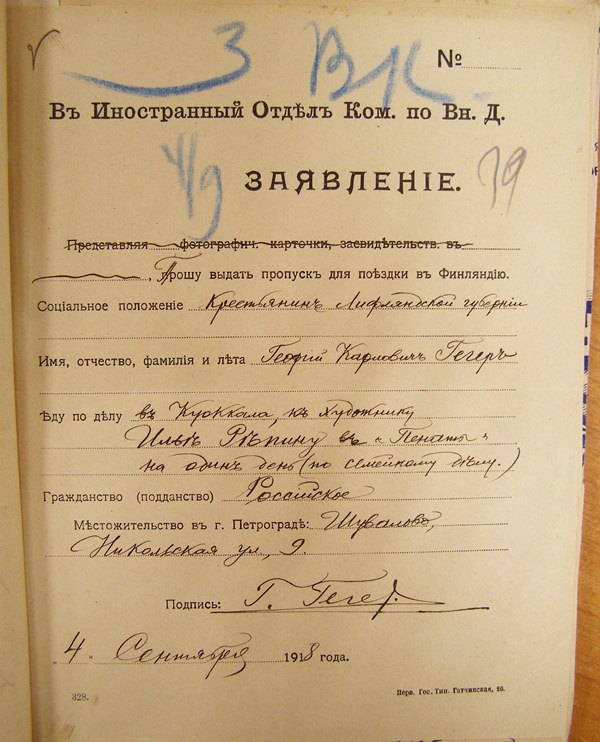 З ВК.
№
Въ Иностранный Отдѣлъ Ком. по Вн. Д.
4/9
ЗАЯВЛЕНІЕ. 79
Представляя фотографич. карточки, засвидѣтельств. въ
, Прошу выдать пропускъ для поѣздки въ Финляндію.
Соціальное положеніе Крестьянинъ Лифляндской губерніи
Имя, отчество, фамилія и лѣта Георгій Карловичъ Гегеръ
Ѣду по дѣлу въ Куоккала, къ художнику
Ильѣ Рѣпину въ "Пенаты"
на одинъ день (по семейному дѣлу.)
Гражданство (подданство) Россійское
Мѣстожительство въ г. Петроградѣ: Шувалово,
Никольская ул, 9.
Подпись: Г. Гегер.
4. Сентября 1918 года.
328. Перв. Гос. Тип. Гатчинская, 26.